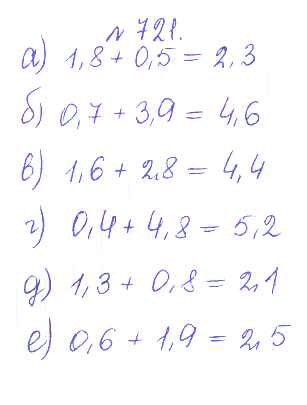 № 721.
а) 1,8 + 0,5 = 2,3
б) 0,7 + 3,9 = 4,6
в) 1,6 + 2,8 = 4,4
г) 0,4 + 4,8 = 5,2
д) 1,3 + 0,8 = 2,1
е) 0,6 + 1,9 = 2,5